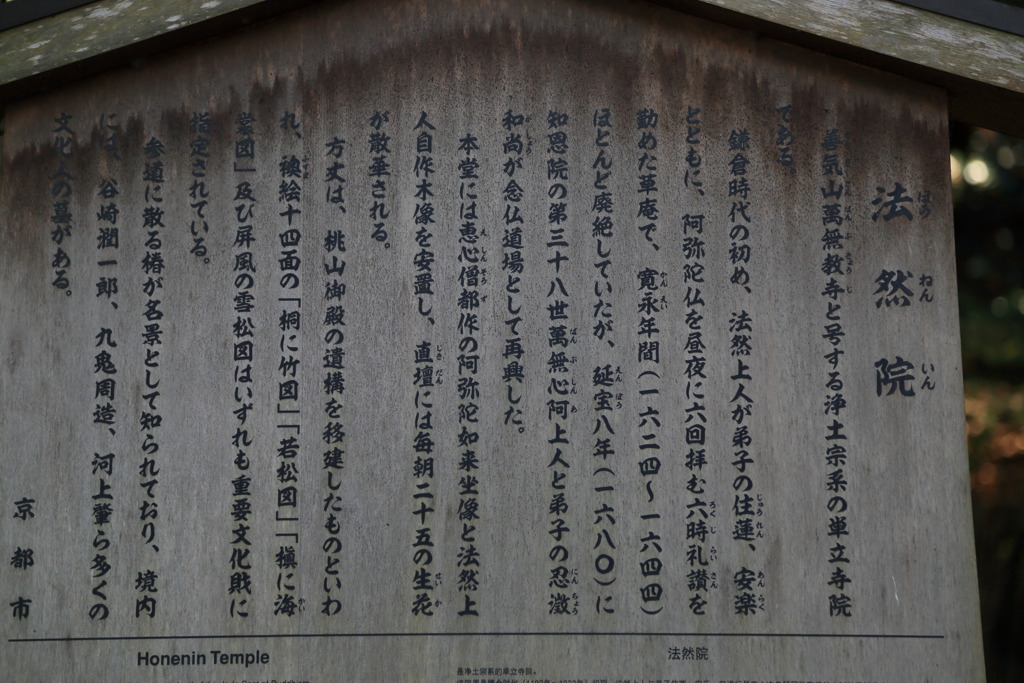 法然院
ほう ねん いん
善気山萬無教寺と号する浄土宗系の単立寺院
である。
鎌倉時代の初め、法然上人が弟子の住蓮、安楽
とともに、阿弥陀仏を昼夜に六回拝む六時礼讃を
勤めた草庵で、寛永年間(一六二四~一六四四)
ほとんど廃絶していたが、延宝八年(一六八〇)に
知恩院の第三十八世萬無心阿上人と弟子の忍澂
和尚が念仏道場として再興した。
本堂には恵心僧都作の阿弥陀如来坐像と法然上
人自作木像を安置し、直壇には毎朝二十五の生花
が散華される。
方丈は、桃山御殿の遺構を移建したものといわ
れ、襖絵十四面の「桐に竹図」「若松図」「槇に海
棠図」及び屏風の雪松図はいずれも重要文化財に
指定されている。
参道に散る椿が名景として知られており、境内
には、谷崎潤一郎、九鬼周造、河上肇ら多くの
文化人の墓がある。
京都市
Honenin Temple
法然院
是净土宗系的单立寺院。